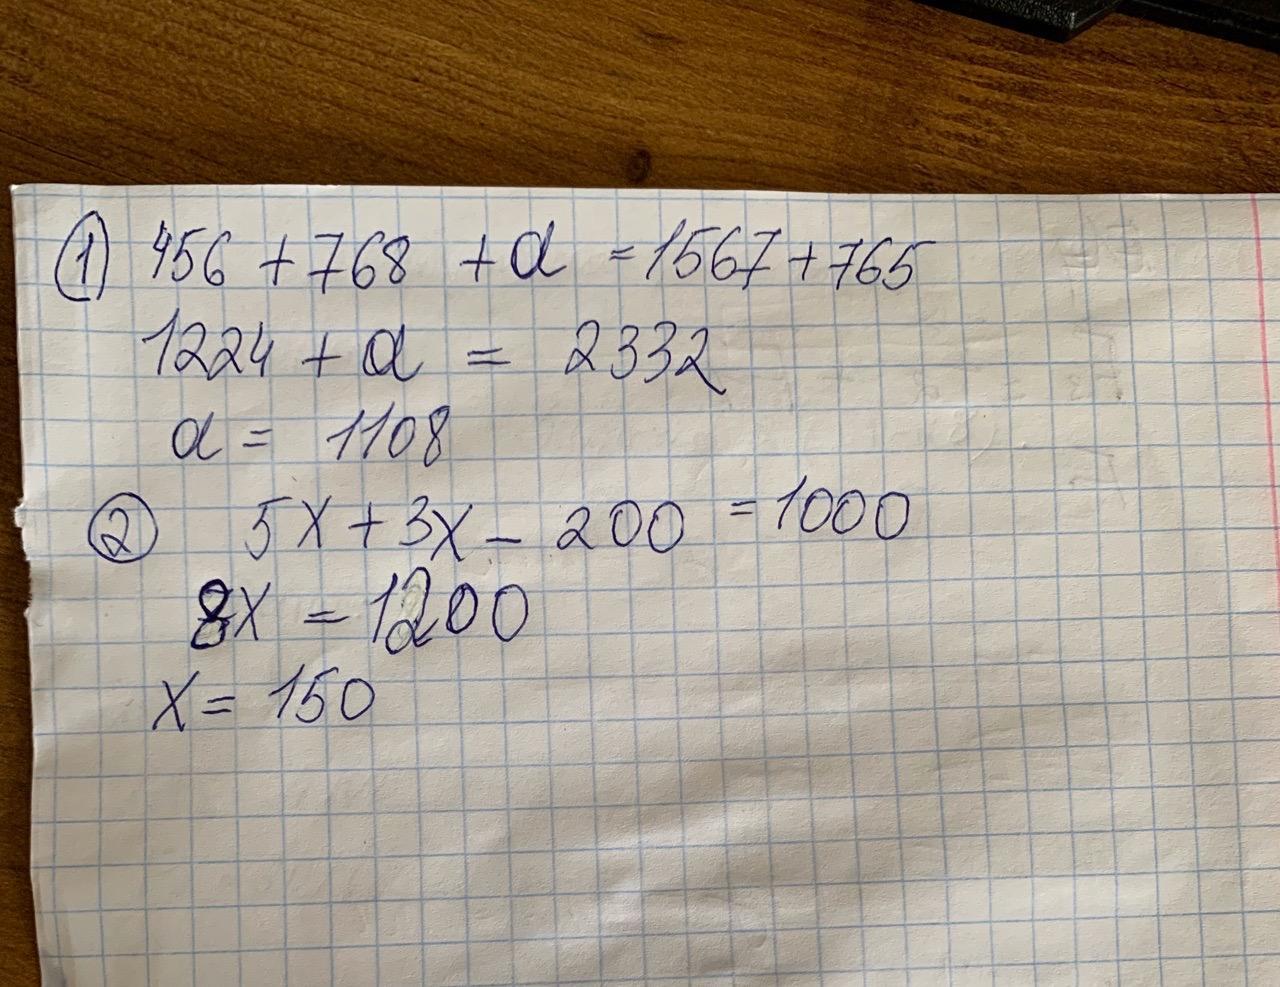 ① 456 + 768 + a = 1567 + 765
1224 + a = 2332
a = 1108
② 5x + 3x - 200 = 1000
8x = 1200
x = 150